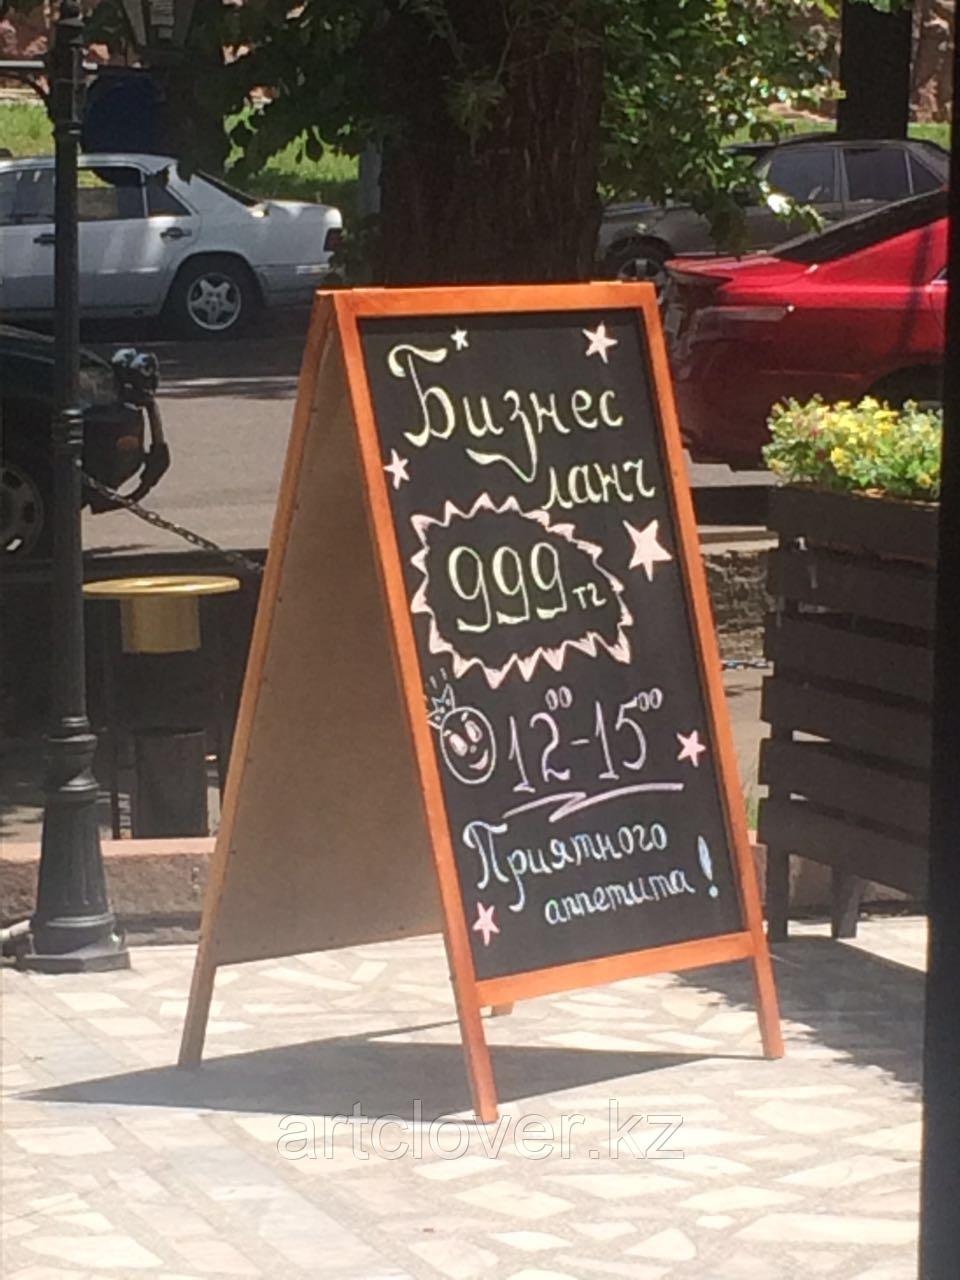 Бизнес
ланч
999 тг
12⁰⁰-15⁰⁰
Приятного
аппетита!
artclover.kz